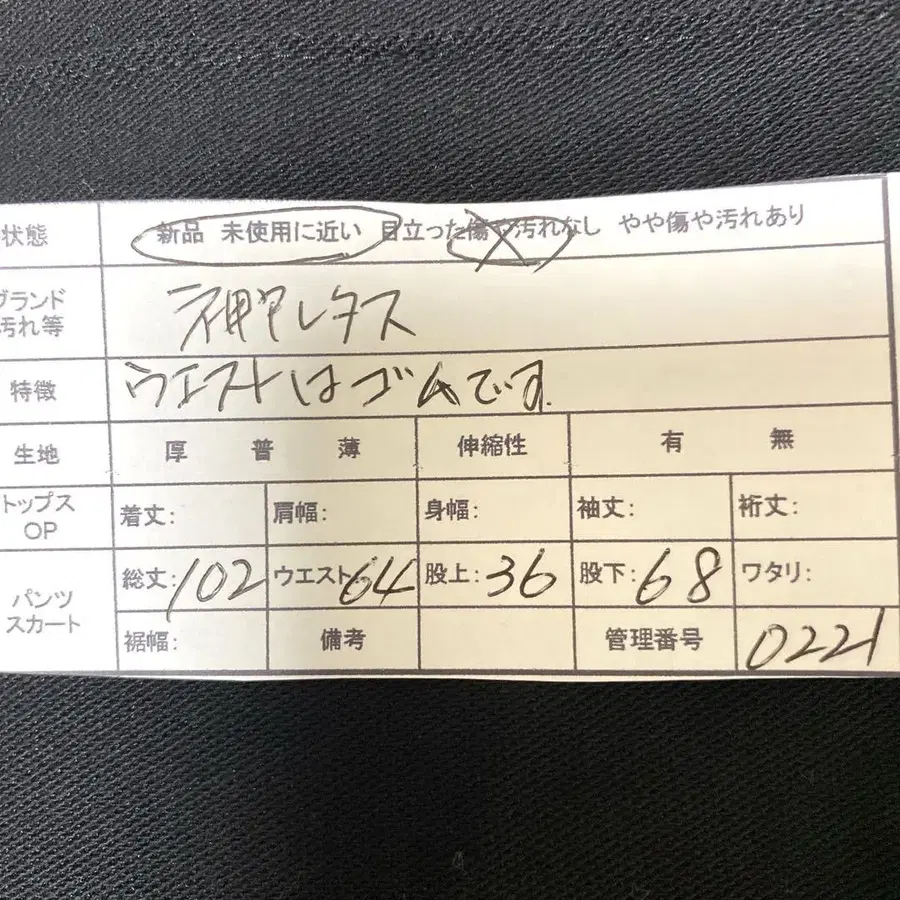 状態 新品 未使用に近い 目立った傷や汚れなし やや傷や汚れあり
ブランド
汚れ等
レタス
特徴 ウエストはゴムです.
生地 厚 普 薄 伸縮性 有 無
トップス
OP
着丈: 肩幅: 身幅: 袖丈: 裄丈:
パンツ
スカート
総丈:102 ウエスト64 股上:36 股下:68 ワタリ:
裾幅: 備考 管理番号 0221